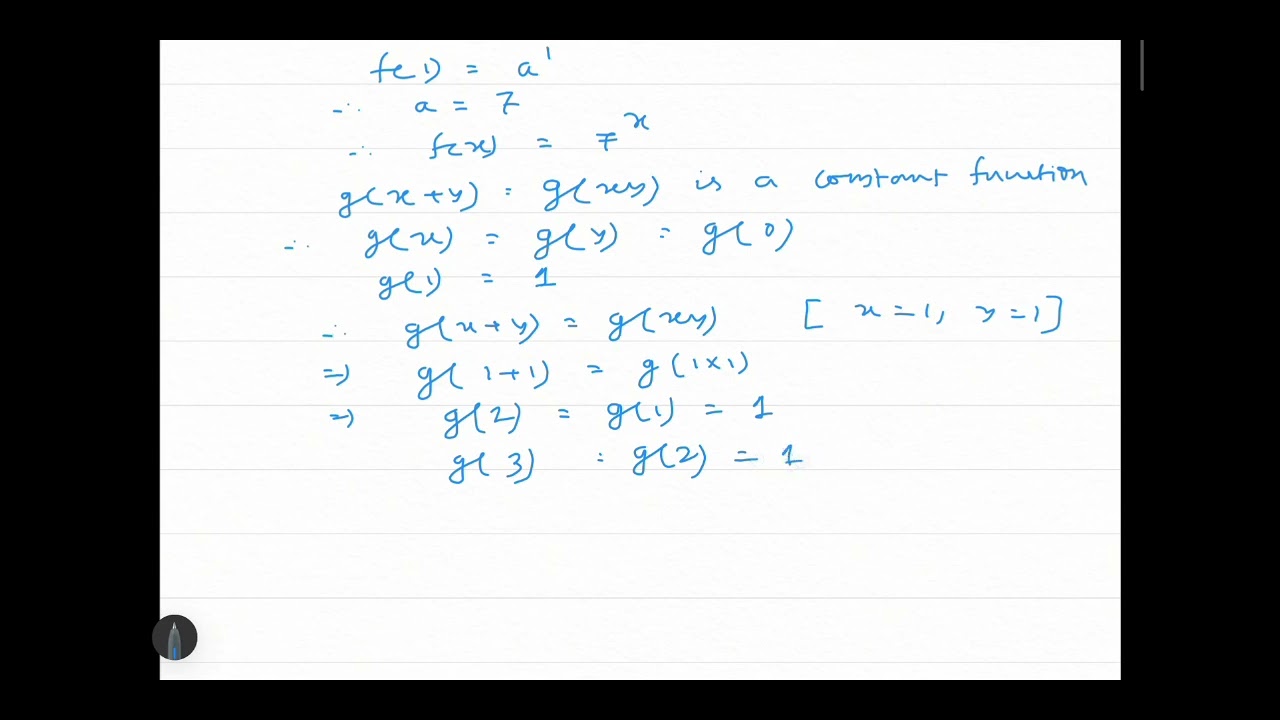 f(1) = a¹
∴ a = 7
∴ f(x) = 7ˣ
g(x+y) = g(xy) is a constant function
∴ g(x) = g(y) = g(0)
g(1) = 1
∴ g(x+y) = g(xy) [ x=1, y=1]
⇒ g(1+1) = g(1×1)
⇒ g(2) = g(1) = 1
g(3) = g(2) = 1